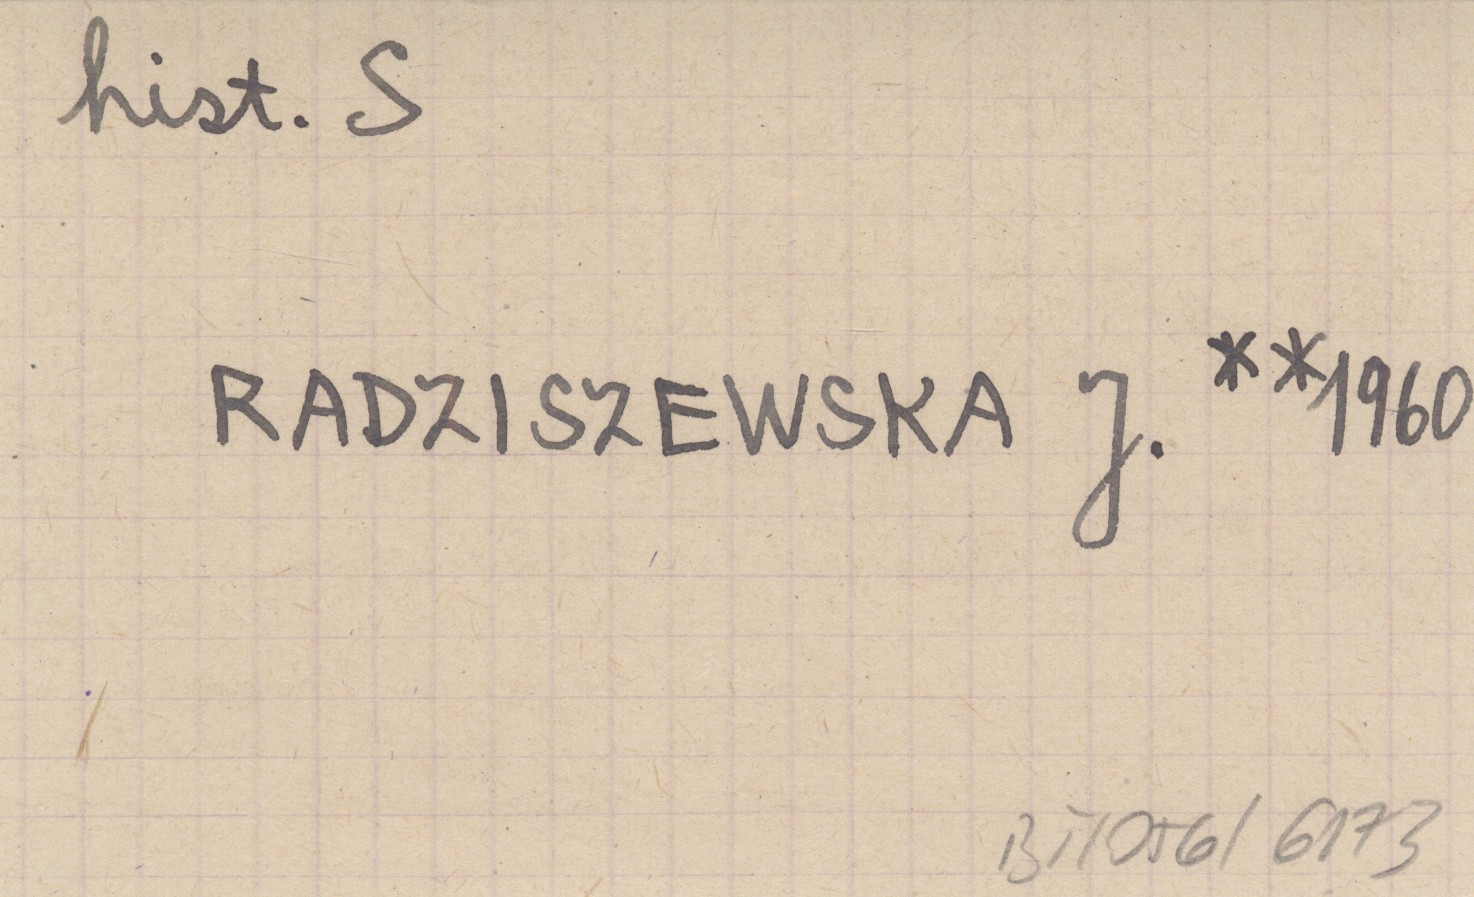 hist. S
RADZISZEWSKA J. **1960
6173